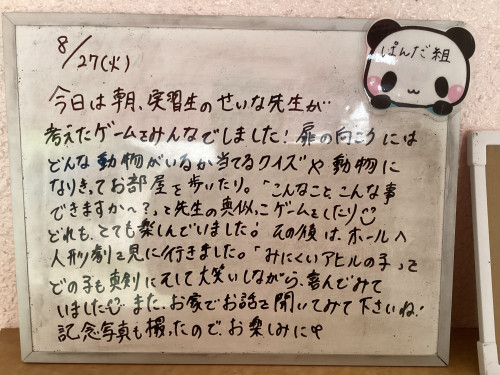 ぱんだ組
8/27(火)
今日は朝、実習生のせいな先生が…
考えたゲームをみんなでしました！扉の向こうには
どんな動物がいるか当てるクイズや動物に
なりきってお部屋を歩いたり。「こんなこと、こんな事
できますか〜？」と先生の真似っこゲームをしたり
どれも、とても楽しんでいました！その後は、ホールへ
人形劇を見に行きました。「みにくいアヒルの子」って
どの子も真剣にそして大笑いしながら、喜んでみて
いました また、お家でお話を聞いてみて下さいね！
記念写真も撮ったので、お楽しみに♡